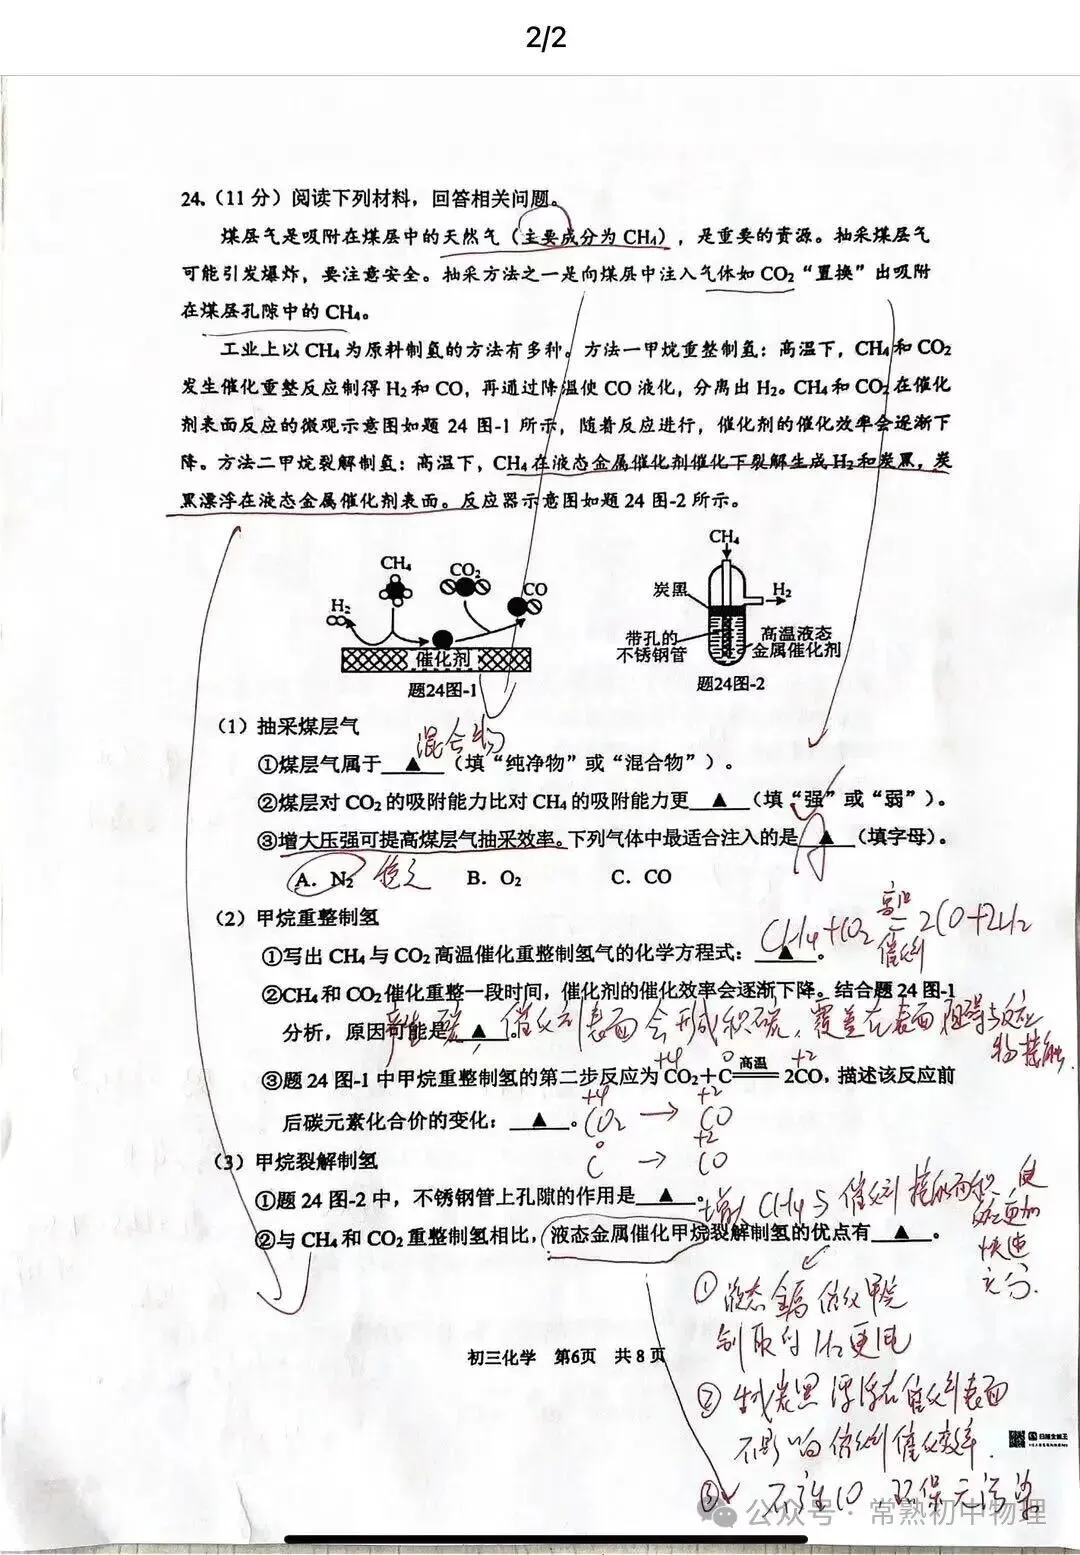 2/2
24.（11 分）阅读下列材料，回答相关问题。
煤层气是吸附在煤层中的天然气（主要成分为 CH₄），是重要的资源。抽采煤层气
可能引发爆炸，要注意安全。抽采方法之一是向煤层中注入气体如 CO₂“置换”出吸附
在煤层孔隙中的 CH₄。
工业上以 CH₄ 为原料制氢的方法有多种。方法一甲烷重整制氢：高温下，CH₄ 和 CO₂
发生催化重整反应制得 H₂ 和 CO，再通过降温使 CO 液化，分离出 H₂。CH₄ 和 CO₂ 在催化
剂表面反应的微观示意图如题 24 图-1 所示，随着反应进行，催化剂的催化效率会逐渐下
降。方法二甲烷裂解制氢：高温下，CH₄ 在液态金属催化剂催化下裂解生成 H₂ 和炭黑，炭
黑漂浮在液态金属催化剂表面。反应器示意图如题 24 图-2 所示。
CH₄
CO₂
CO
H₂
催化剂
题24图-1
CH₄
炭黑
H₂
带孔的
不锈钢管
高温液态
金属催化剂
题24图-2
（1）抽采煤层气
混合物
①煤层气属于 ▲ （填“纯净物”或“混合物”）。
②煤层对 CO₂ 的吸附能力比对 CH₄ 的吸附能力更 ▲ （填“强”或“弱”）。
③增大压强可提高煤层气抽采效率。下列气体中最适合注入的是 ▲ （填字母）。
A．N₂ B．O₂ C．CO
（2）甲烷重整制氢
①写出 CH₄ 与 CO₂ 高温催化重整制氢气的化学方程式： ▲ 。
CH₄+CO₂ 高温 = 催化剂 2CO+2H₂
②CH₄ 和 CO₂ 催化重整一段时间，催化剂的催化效率会逐渐下降。结合题 24 图-1
分析，原因可能是 ▲ 。
产生碳，催化剂表面会形成积碳，覆盖在表面阻碍与反应
物接触.
③题 24 图-1 中甲烷重整制氢的第二步反应为 CO₂+C 高温 2CO，描述该反应前
+4 0 +2
后碳元素化合价的变化： ▲ 。
+4 +2
CO₂ → CO
0 +2
C → CO
（3）甲烷裂解制氢
①题 24 图-2 中，不锈钢管上孔隙的作用是 ▲ 。
增大 CH₄与催化剂接触面积，使
反应更加
快速
充分.
②与 CH₄ 和 CO₂ 重整制氢相比，液态金属催化甲烷裂解制氢的优点有 ▲ 。
① 液态金属催化甲烷
制取的 H₂更纯
② 生成炭黑漂浮在催化剂表面
不影响催化剂催化效率.
③ 不产生CO 环保无污染
初三化学 第6页 共8页
扫描全能王
公众号 · 常熟初中物理